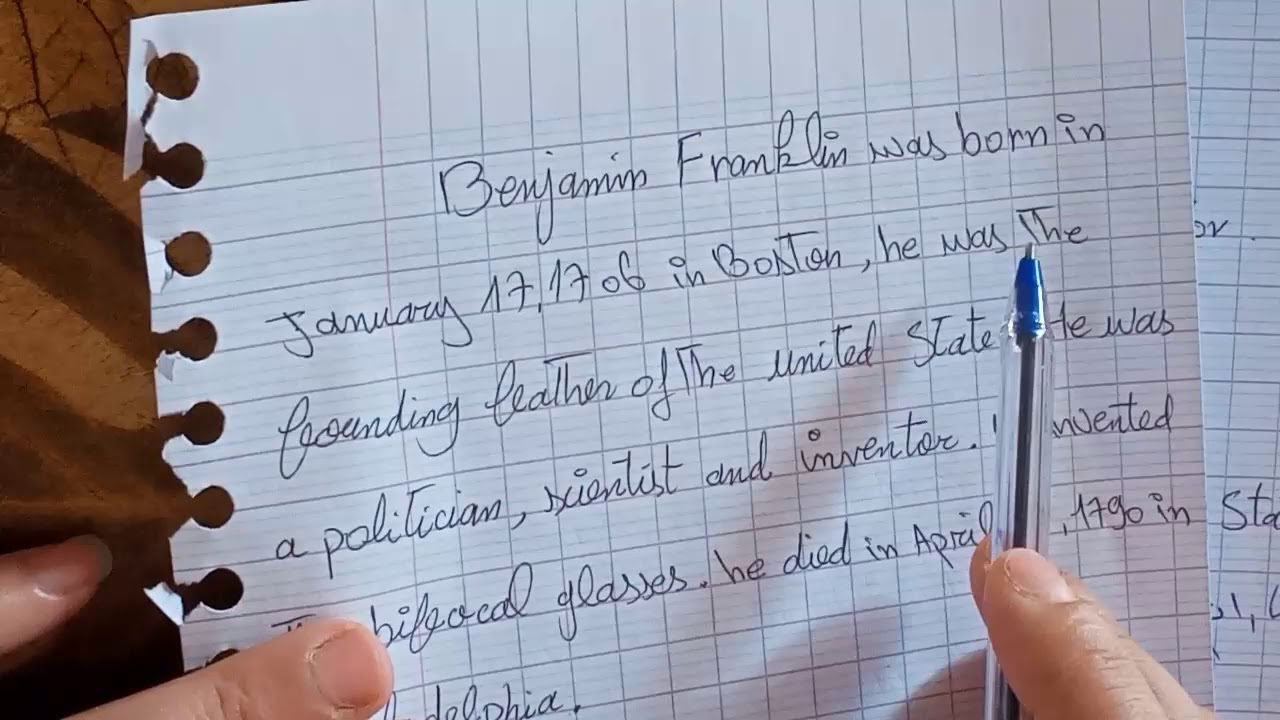 Benjamin Franklin was born in
January 17, 1706 in Boston, he was The
founding feather of The united State He was
a politician, scientist and inventor. invented
bifocal glasses. he died in April , 1790 in
delphia.